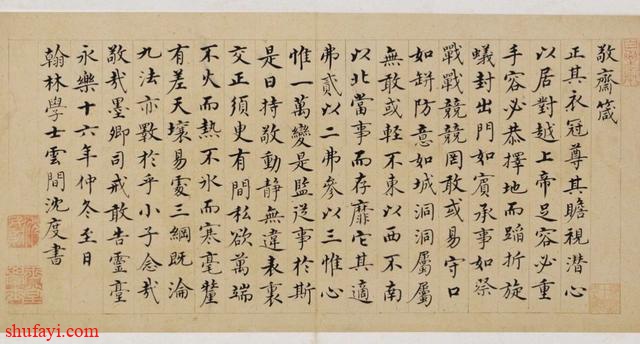 敬齋箴
正其衣冠尊其瞻視潛心
以居對越上帝足容必重
手容必恭擇地而蹈折旋
蟻封出門如賓承事如祭
戰戰競競罔敢或易守口
如缾防意如城洞洞屬屬
無敢或輕不東以西不南
以北當事而存靡它其適
弗貳以二弗參以三惟心
惟一萬變是監從事於斯
是曰持敬動静無違表裏
交正須臾有間私欲萬端
不火而熱不氷而寒毫釐
有差天壤易處三綱既淪
九法亦斁於乎小子念哉
敬哉墨卿司戒敢告靈臺
永樂十六年仲冬至日
翰林學士雲間沈度書
shufayi.com